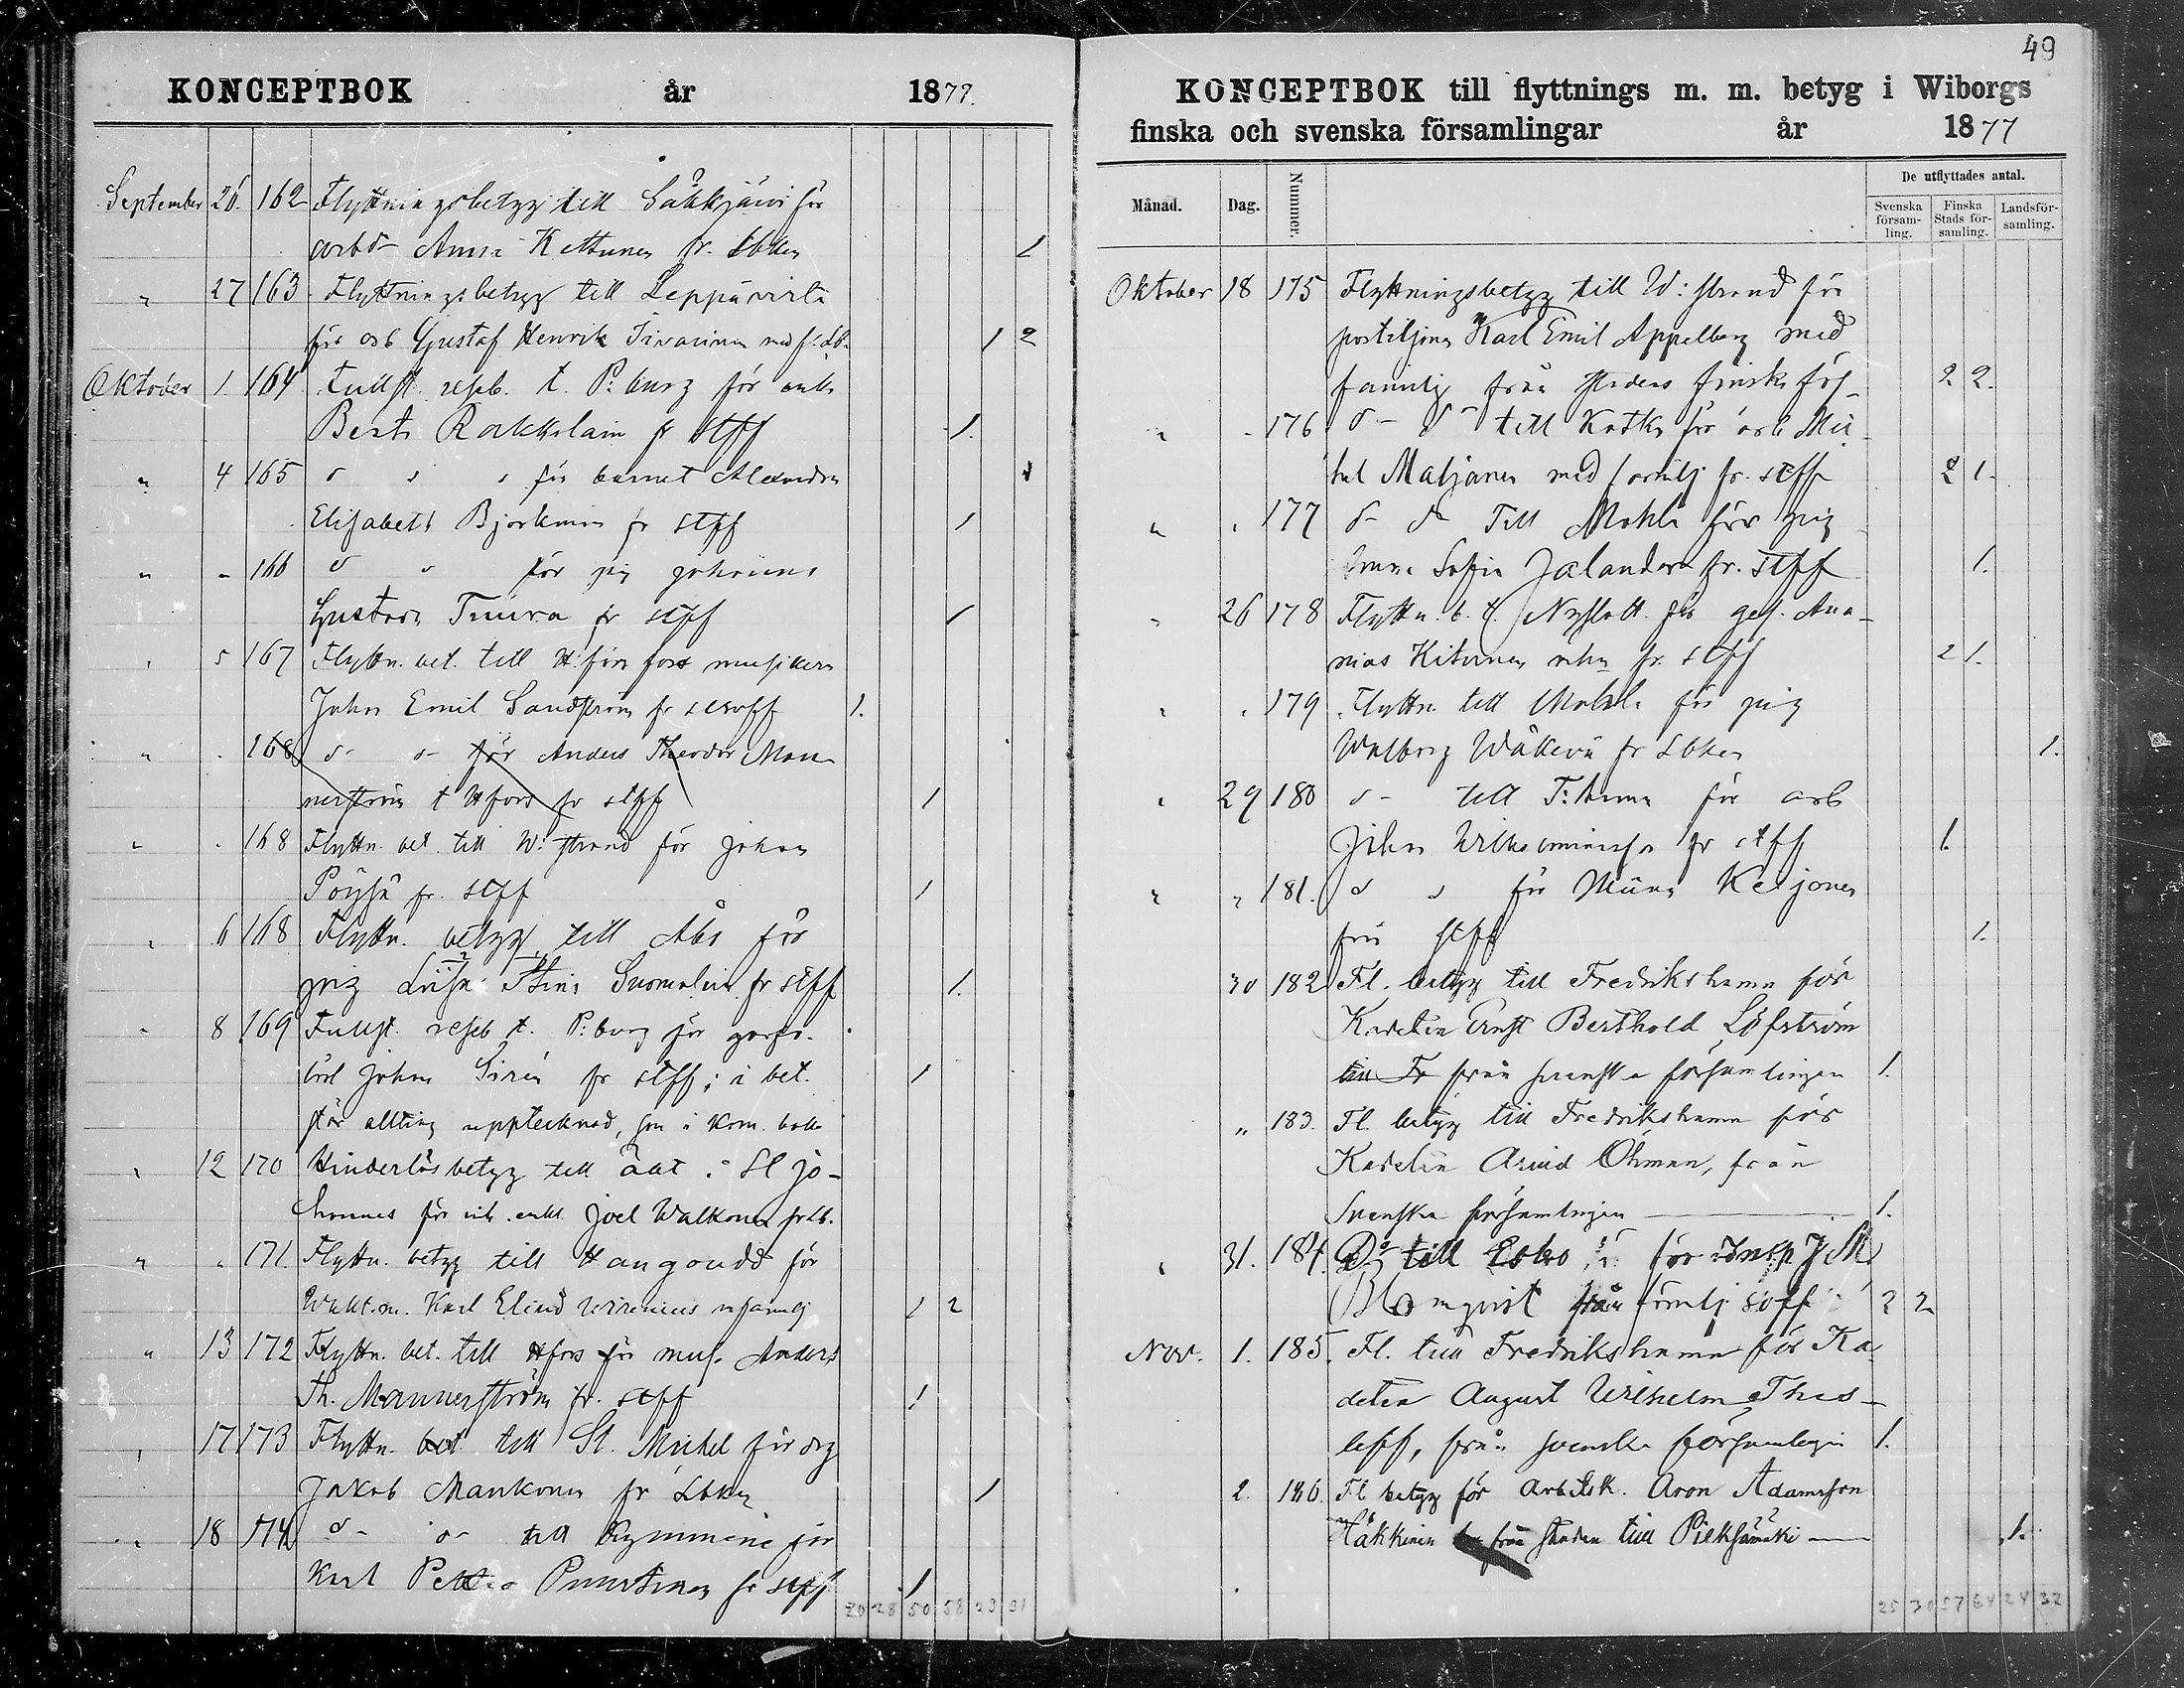 KONCEPTBOK år 1877.
September 26. 162 Flyttningsbetyg till Säkkjärvi för
arb d- Anna Kettunen fr. Lbken 1
" 27 163 Flyttningsbetyg till Leppävirta
för arb Gustaf Henrik med f. 1 2
Oktober 1. 164 Fullst. reseb. t. P:burg för enk
Berta fr Stff 1.
" 4 165 d d d för barnet Alexandra 1
Elisabeth Björkman fr stff 1
" " 166 d d för pig Johanna
Gustava Tuura fr stff 1
" 5 167 Flyttn. bet. till H:fors för musikern
Johan Emil Sandström fr 1.
" " 168 d- d- för Anders Theodor Man-
nerström t Hfors fr stff 1
" " 168 Flyttn. bet. till W:strand för Johan
Pöyhä fr. stff 1
" 6 168 Flyttn. betyg till Åbo för
pig Stina Suomalain fr stff 1.
" 8 169 Fullst. reseb t. P:burg för
Johan Sirén fr stff; i bet.
1
står allting upptecknad, som i kom. bok
" 12 170 Hinderlösbetyg till äkt. i St Jo-
hannes för enkl. Joel Walkonen fr Lb.
" " 171. Flyttn. betyg till Hangoudd för
Waktm. Karl Elind Wirenius m familj 1 2
" 13 172 Flyttn. bet. till Hfors för mus. Anders
Th. Mannerström fr. stff 1
" 17 173 Flyttn. bet till St. Michel för drg
Jakob Mankonen fr Lbken 1
" 18 174 d- d- till Kymmene för
Karl Petter Puustinen fr stff 1
20 28 50 58 23 31
49
KONCEPTBOK till flyttnings m. m. betyg i Wiborgs
finska och svenska församlingar år 1877
Månad. Dag. Nummer. De utflyttades antal.
Svenska församling. Finska Stads församling. Landsförsamling.
Oktober 18 175 Flyttningsbetyg till W:strand för
postiljonen Karl Emil Appelberg med
familj från stadens finska förs 2 2.
" " 176 d- d- till Kotka för arb Mi-
kel Matjanen med familj fr. stff 2 1.
" " 177 d- d- Till Mohla för pig
Sofia Jalander fr. stff 1.
" 26 178 Flyttn. b. t. Nyslott för ges. Ana-
nias Kiturinen fr. stff 2 1.
" " 179 Flyttn. till Mohla för pig
Walborg Wäkevä fr Lbken 1.
" 29 180 d- till F:hamn för arb
Johan fr stff 1.
" " 181. d d för Miina Keljonen
från stff 1.
30 182 Fl. betyg till Fredrikshamn för
Kadeten Ernst Berthold Löfström
till Fr från svenska församlingen 1.
" 183. Fl. betyg till Fredrikshamn för
Kadeten Arvid Öhman, från
Svenska församlingen 1.
" 31. 184. Do till Esbo för Insp J M
Blomqvist från familj söff 2 2
Nov. 1. 185. Fl. till Fredrikshamn för Ka-
deten August Wilhelm Thes-
leff, från svenska församlingen 1.
2. 186. Fl betyg för Arb Aron Adamsson
Häkkinen från staden till Pieksämäki 1.
25 30 57 64 24 32